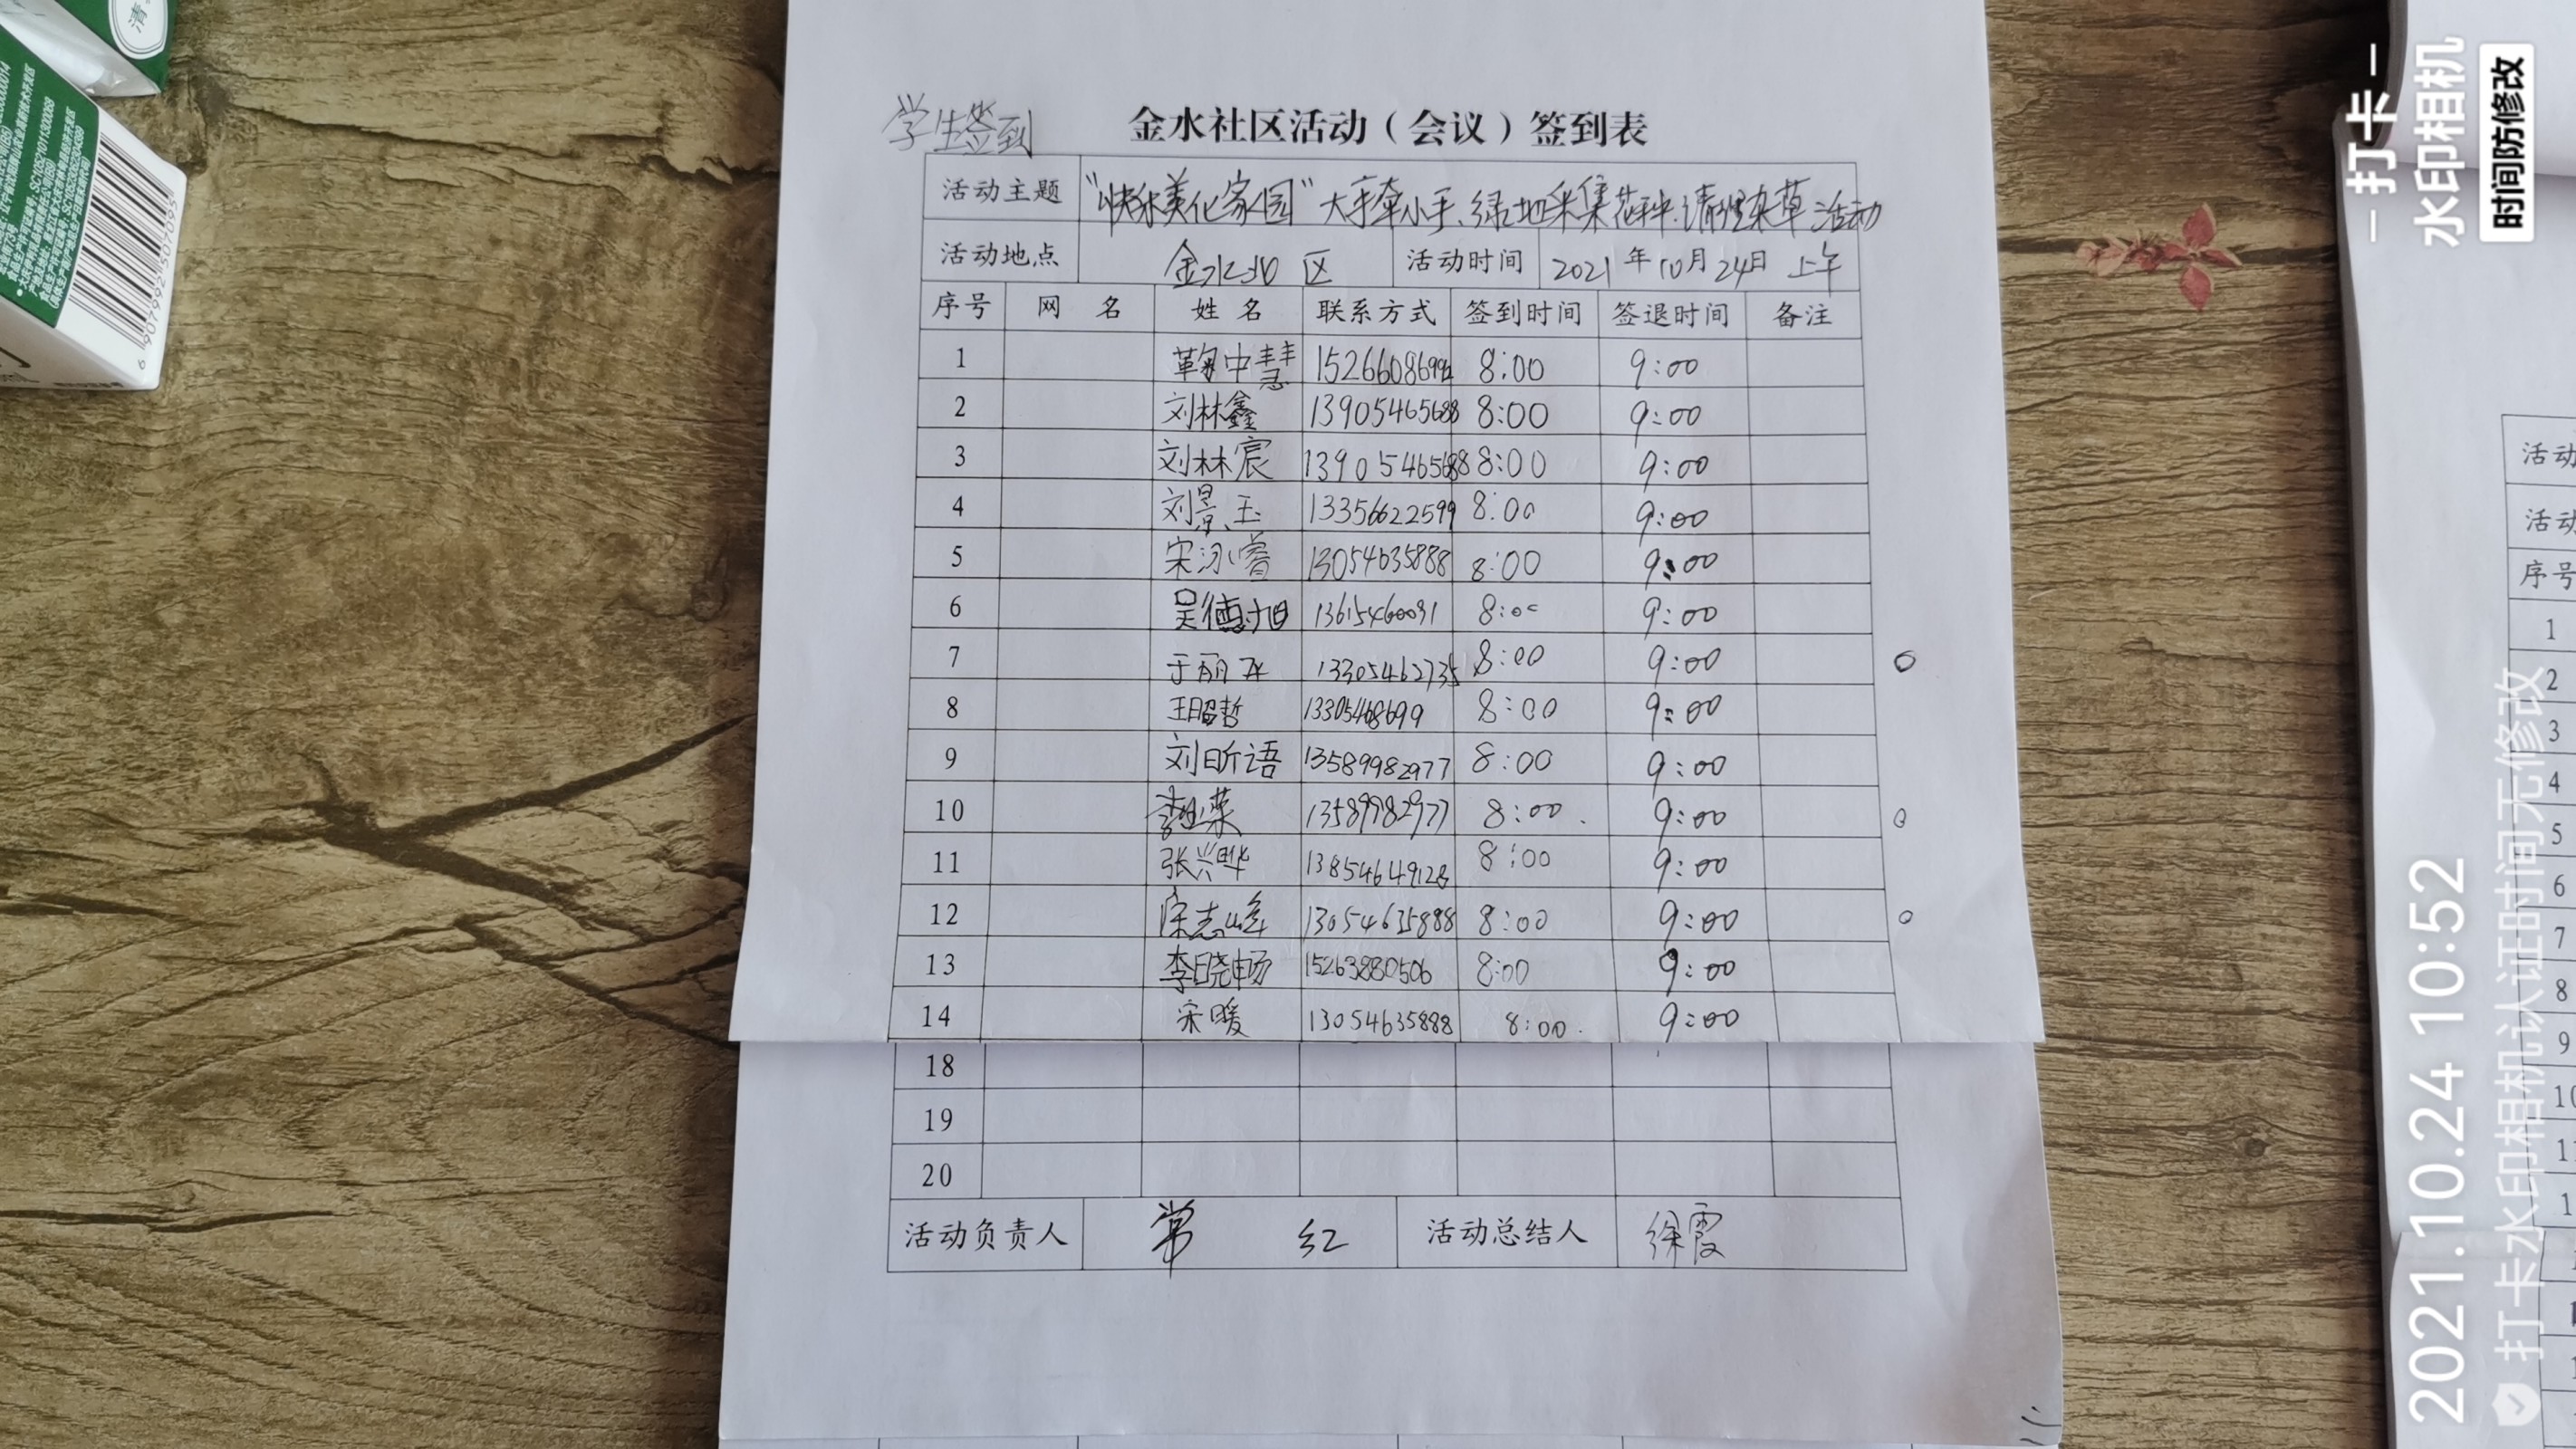 学生签到
金水社区活动（会议）签到表
活动主题 "快乐美化家园"大手牵小手、绿地采集花种、清理杂草活动
活动地点 金水北区 活动时间 2021年10月24日 上午
序号 网 名 姓 名 联系方式 签到时间 签退时间 备注
1 鞠中慧 8:00 9:00
2 刘林鑫 13905465688 8:00 9:00
3 刘林宸 13905465688 8:00 9:00
4 刘景玉 13356622599 8:00 9:00
5 宋泳睿 13054635888 8:00 9:00
6 吴德旭 13615460091 8:00 9:00
7 于丽 13305462735 8:00 9:00
8 王昭哲 13305468699 8:00 9:00
9 刘昕语 13589982977 8:00 9:00
10 荣 13589982977 8:00 9:00
11 张兴晔 13854649128 8:00 9:00
12 宋志峰 13054635888 8:00 9:00
13 李晓畅 15263880506 8:00 9:00
14 宋暖 13054635888 8:00 9:00
18
19
20
活动负责人 常 红 活动总结人 徐霞
打卡
水印相机
时间防修改
2021.10.24 10:52
打卡水印相机认证时间无修改
活动
活动
序号
1
2
3
4
5
6
7
8
9
10
6907992507095